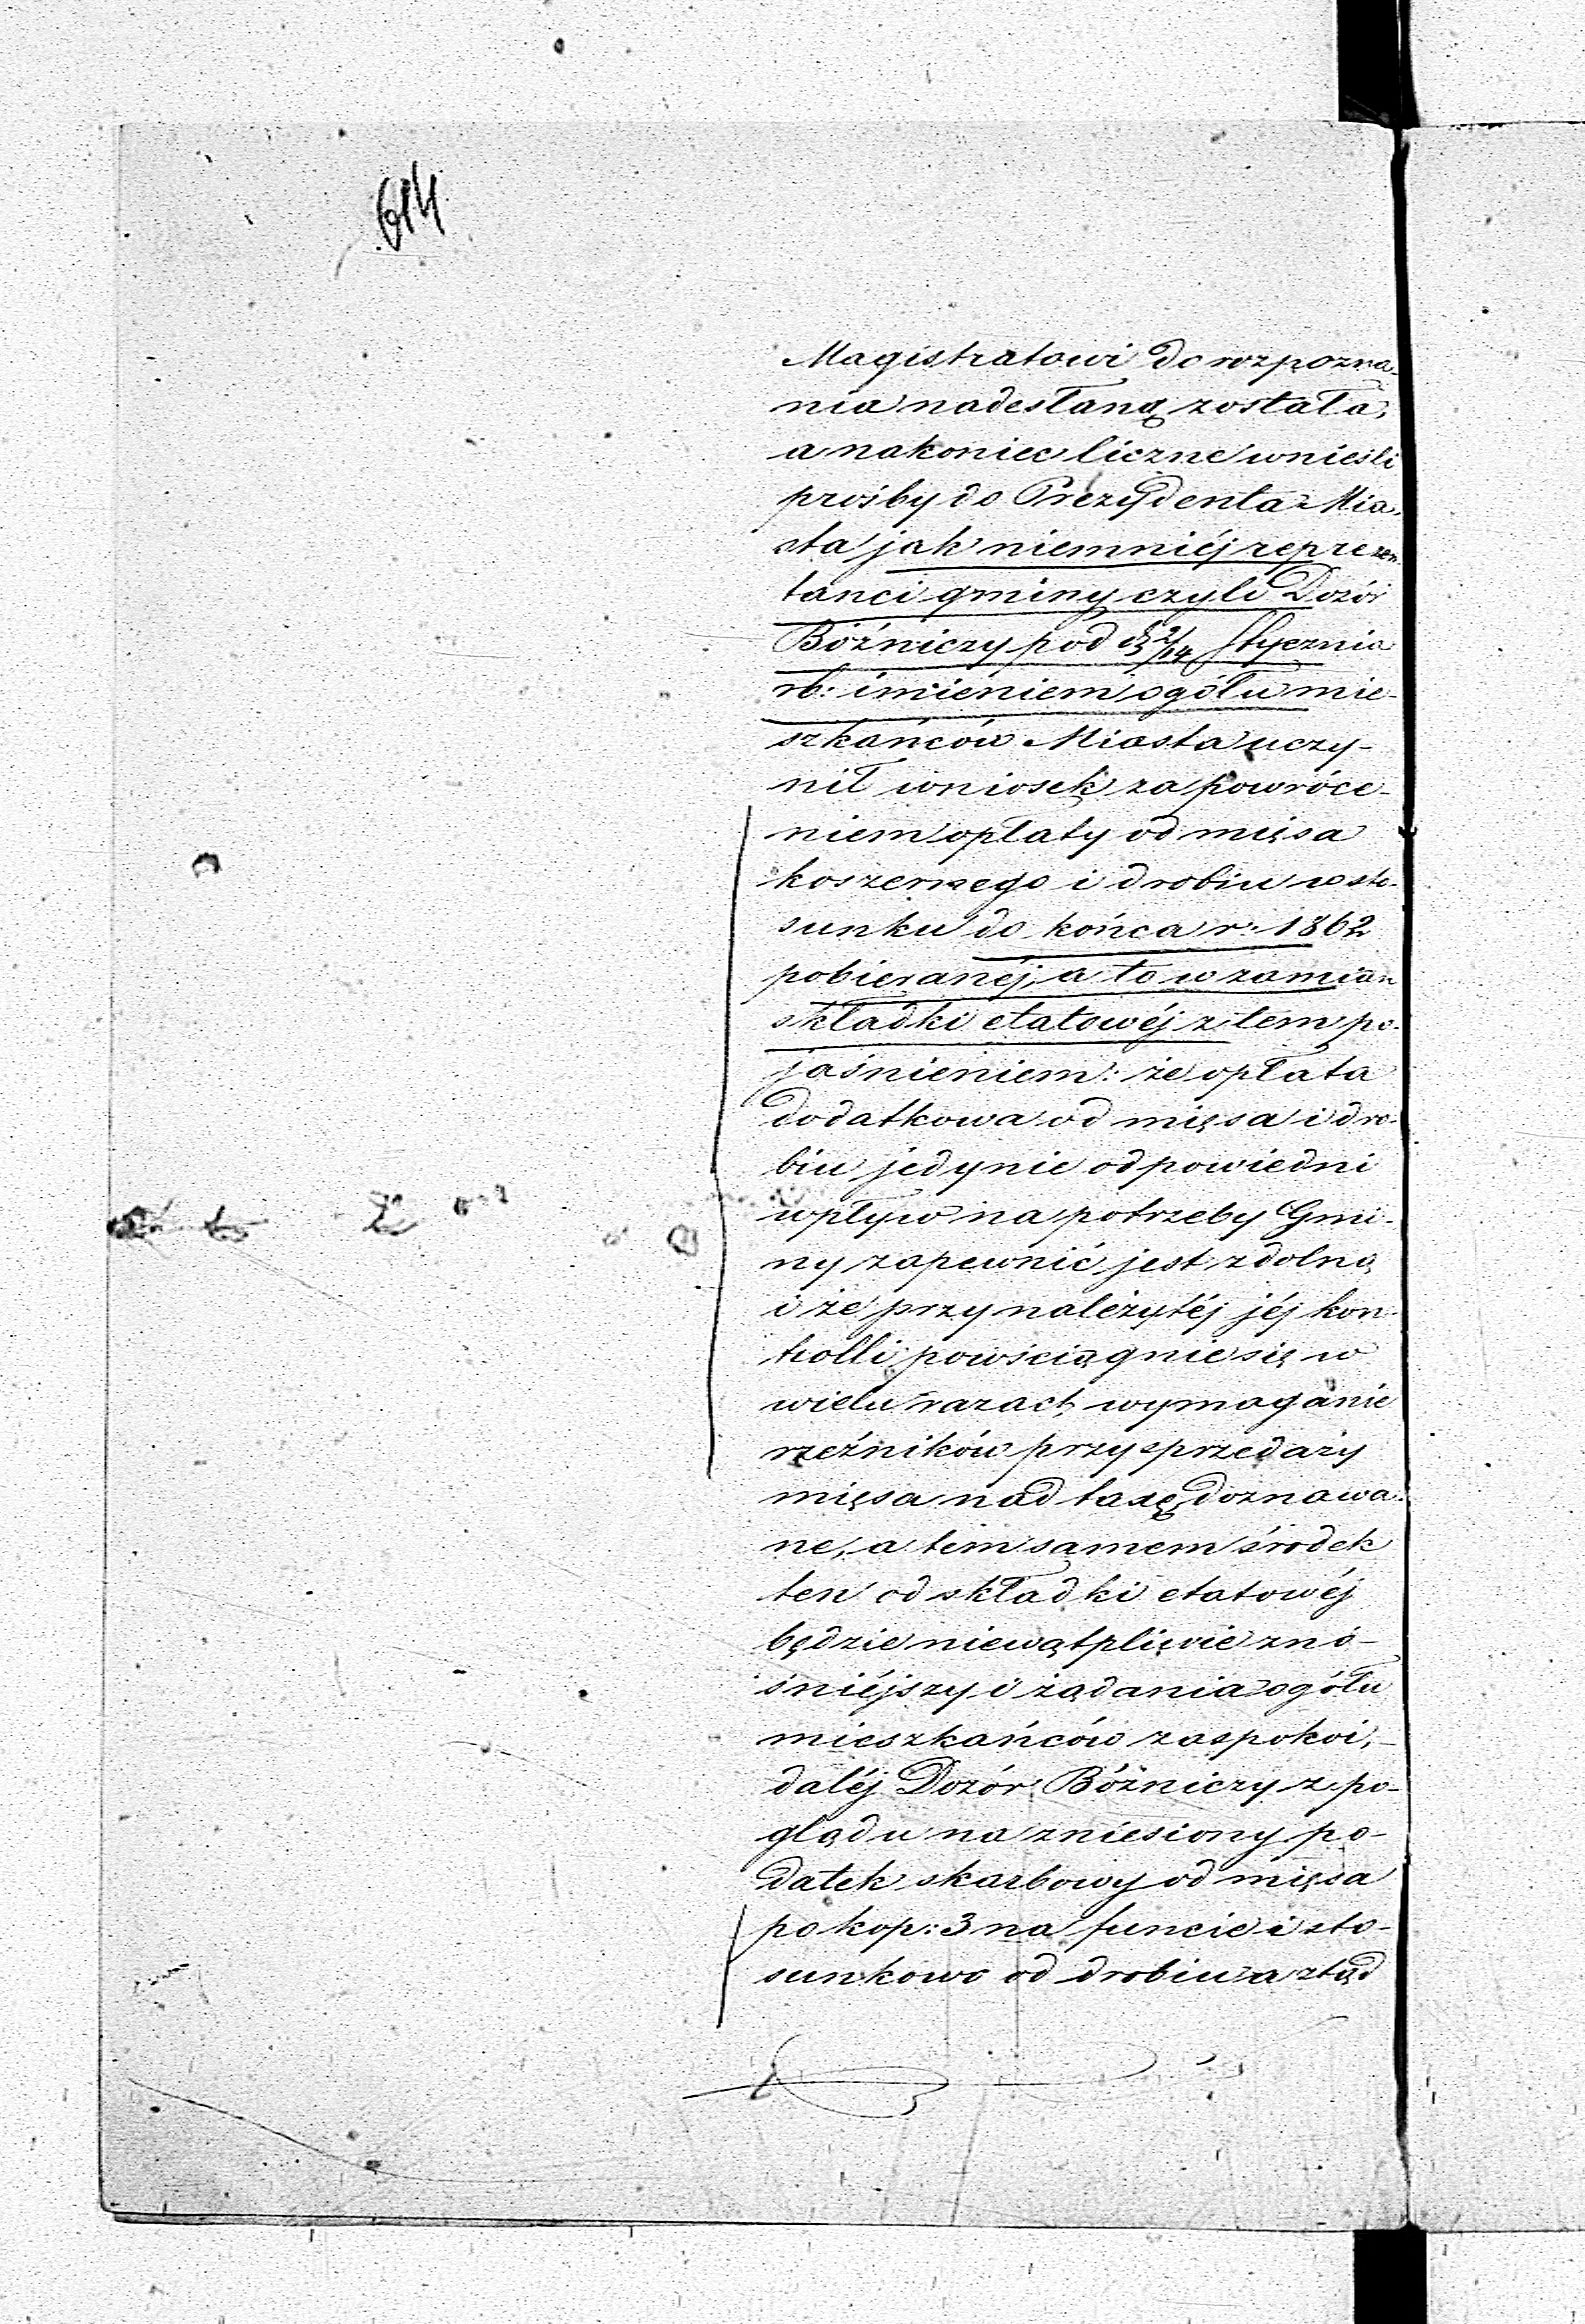 614
Magistratowi do rozpozna-
nia nadesłaną została,
a nakoniec liczne wnieśli
prośby do Prezydenta Mia-
sta jak niemniéj reprezen-
tanci gminy czyli Dozór
Bóźniczy pod d 2/14 Stycznia
rb: imieniem ogółu mie-
szkańców Miasta uczy-
nił wniosek za powróce-
niem opłaty od mięsa
koszernego i drobiu w sto-
sunku do końca r: 1862
pobieranéj, a to w zamian
składki etatowéj z tem po-
jaśnieniem: że opłata
dodatkowa od mięsa i dro-
biu jedynie odpowiedni
wpływ na potrzeby Gmi-
ny zapewnić jest zdolną
i że przy należytéj jéj kon-
trolli powściągnie się w
wielu razach wymaganie
rzeźników przy sprzedaży
mięsa nad taxę doznawa-
ne, a tem samem środek
ten od składki etatowéj
będzie niewątpliwie zno-
śniéjszy i żądania ogółu
mieszkańców zaspokoi,-
daléj Dozór Bóźniczy z po-
glądu na zniesiony po-
datek skarbowy od mięsa
po kop: 3 na funcie i sto-
sunkowo od drobiu a ztąd